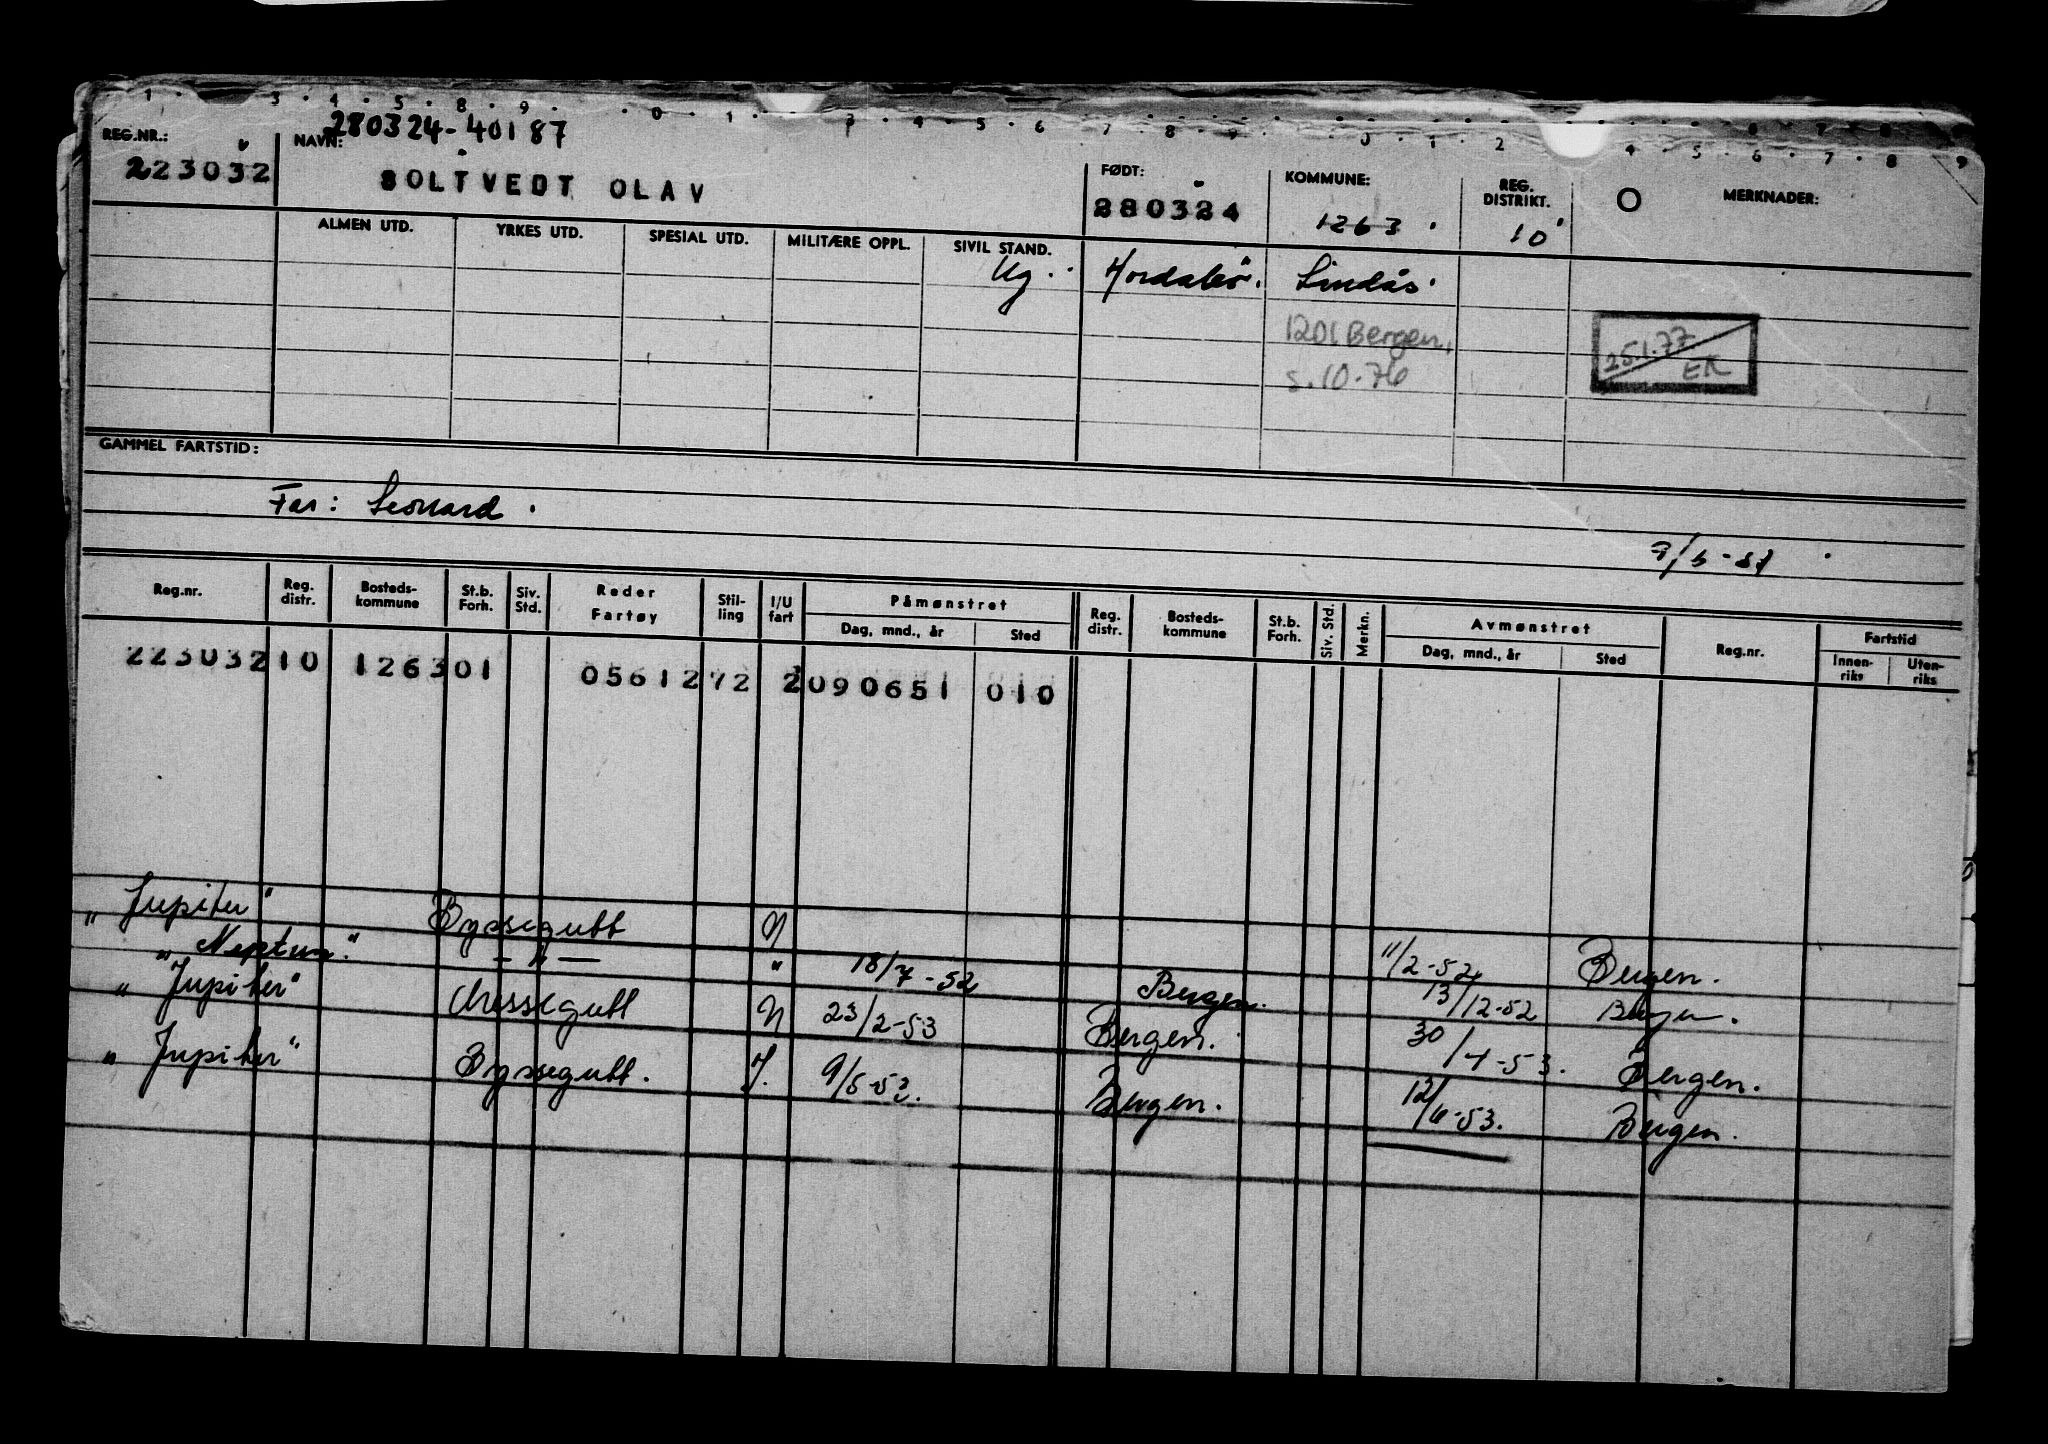 1 · 3 · 4 · 5 · 8 · 9 · 0 · 1 · 3 · 4 · 5 · 6 · 7 · 8 · 9 · 0 · 1 · 2 · 4 · 5 · 6 · 7 · 8 · 9
280324-40187
REG.NR.: NAVN: FØDT: KOMMUNE: REG. DISTRIKT. MERKNADER:
223032 SOLTVEDT OLAV 280324 1263 10
ALMEN UTD. YRKES UTD. SPESIAL UTD. MILITÆRE OPPL. SIVIL STAND.
Ug. Hordabø. Lindås.
1201 Bergen,
s. 10.76
25.1.77
ER
GAMMEL FARTSTID:
Far: Leonard.
Reg.nr. Reg. distr. Bosteds-kommune St.b. Forh. Siv. Std. Reder Fartøy Stil-ling I/U fart Påmønstret Reg. distr. Bosteds-kommune St.b. Forh. Siv. Std. Merkn. Avmønstret Reg.nr. Fartstid
Dag, mnd., år Sted Dag, mnd., år Sted Innen-riks Uten-riks
223032 10 1263 01 05612 72 2 090651 010
"Jupiter" Byssegutt U 11/2-52 Bergen.
"Neptun." - " - " 18/7-52 Bergen. 13/12-52 Bergen.
"Jupiter" Messegutt U 23/2-53 Bergen. 30/4-53. Bergen.
"Jupiter" Byssegutt. U. 9/5-53. Bergen. 12/6-53. Bergen.